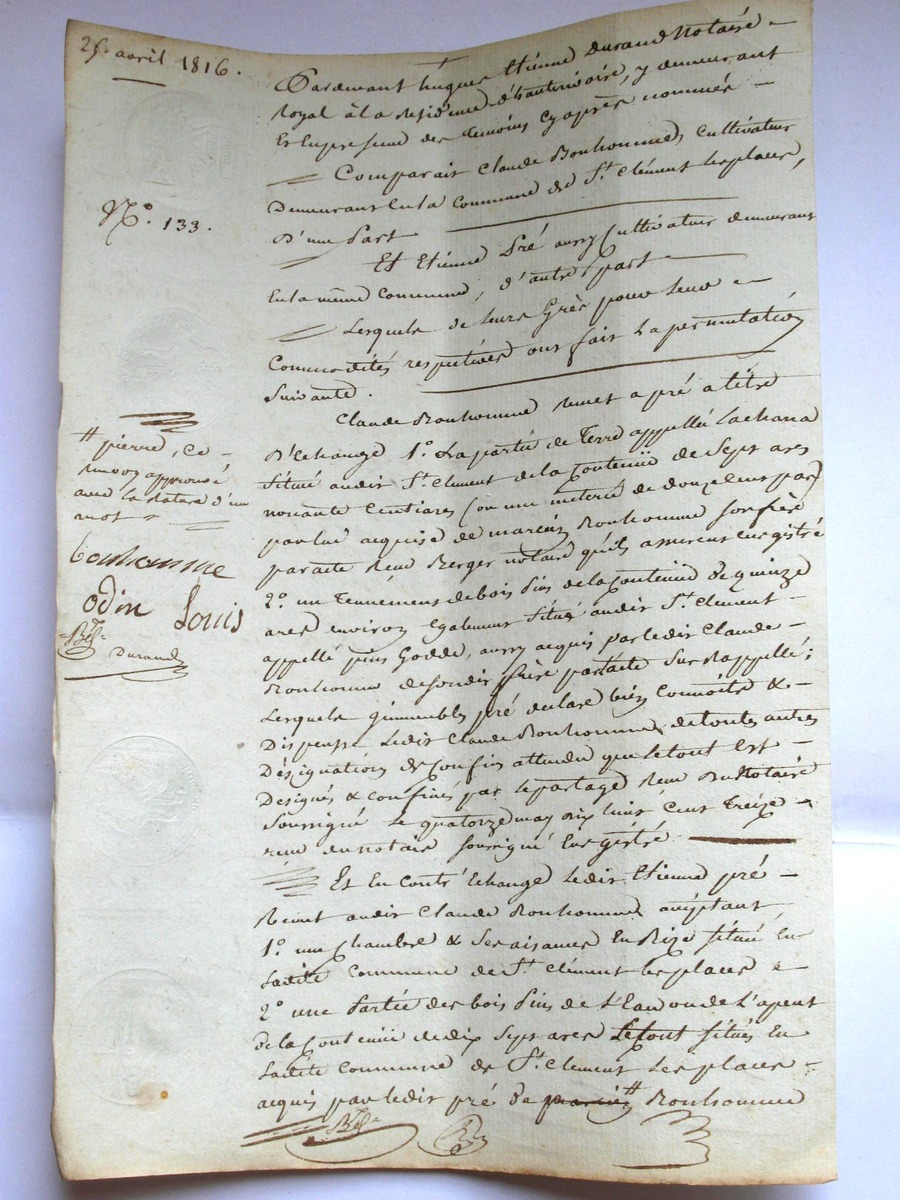 25 avril 1816.
Pardevant hugues Etiénne Durand Notaire
royal à la residence d'hauterivoire, y demeurant
Et En presence des temoins cy après nommés
Comparait Claude Bonhomme, Cultivateur
Demeurant En la Commune de St. Clément les places,
D'une Part
Et Etiénne Pré aussy Cultivateur demeurant
En la même Commune, d'autre part
Lesquels de leurs Grès pour leurs
Commodités respectives ont fait la permutation
Suivante.
Claude Bonhomme remet a pré a titre
D'Echange 1° La partie de Terre appellé Lachana
Situé audit St. Clement de la Contenüe de Sept ares
nonante Centiares (ou une meterée de douze Cent pas)
par lui acquise de Bonhomme Son frère
par acte reçu Berger notaire qu'ils assurent Enregistré
2° un Tennement de bois Pins de la Contenüe de quinze
ares environ Egalement Situé audit St. Clement
appellé pins Godde, aussy acquis par ledit Claude
Bonhomme desondit frère par acte Sus Rappellé;
Lesquels immeubles pré declare bién Connoitre &
Dispense Ledit Claude Bonhomme de toutes autres
Désignations de Confins attendu que Letout Est
Designés & Confinés par le partage reçu Du Notaire
Soussigné Le quatorze may dix huit Cent Treize
reçu du notaire Soussigné Enregistré
Et En Contr'échange Ledit Etienne pré
Remet audit Claude Bonhomme acéptant
1° une Chambre & Ses aisances En Situé En
Ladite Commune de St. Clément les places
2° une Partie des bois Pins de ou de L'apent
de la Contenüe de dix Sept ares Letout Situés En
Ladite Commune de St. Clement Les places
acquis par ledit pré de # Bonhomme
N°. 133.
# pierre, Ce
renvoy approuvé
avec la rature d'un
mot
bonhomme
odin Louis
Durand